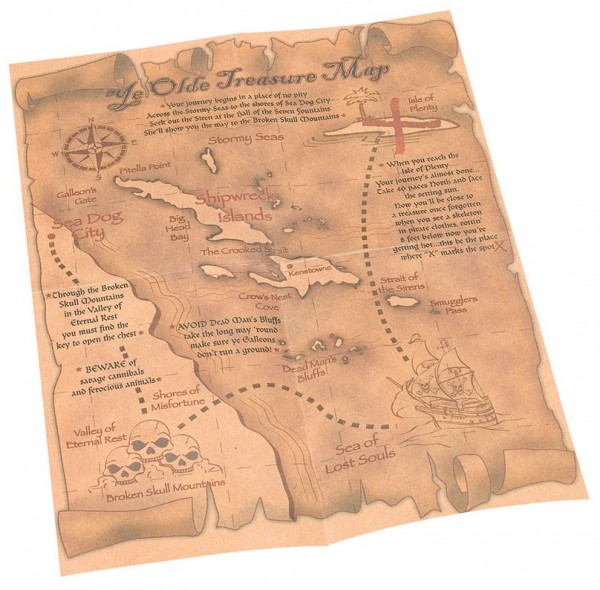 Ye Olde Treasure Map
Your journey begins in a place of no pity
Across the Stormy Seas to the shores of Sea Dog City
Seek out the Siren at the Hall of the Seven Fountains
She'll show you the way to the Broken Skull Mountains
Isle of
Plenty
N
Stormy Seas
Pitella Point
Galleon's
Gate
Shipwreck
Islands
Sea Dog
City
Big
Head
Bay
The Crooked Strait
Kenstowne
Crow's Nest
Cove
When you reach the
Isle of Plenty....
Your journey's almost done...
Take 40 paces North and face
the setting sun.
Now you'll be close to
a treasure once forgotten
when you see a skeleton
in pirate clothes, rottin'
8 feet below now you're
getting hot...this be the place
where "X" marks the spot X
Strait of
the Sirens
Smugglers
Pass
Through the Broken
Skull Mountains
in the Valley of
Eternal Rest
you must find the
key to open the chest
AVOID Dead Man's Bluffs
take the long way 'round
make sure ye Galleons
don't run a ground!
Dead Man's
Bluffs
BEWARE of
savage cannibals
and ferocious animals
Shores of
Misfortune
Valley of
Eternal Rest
Sea of
Lost Souls
Broken Skull Mountains